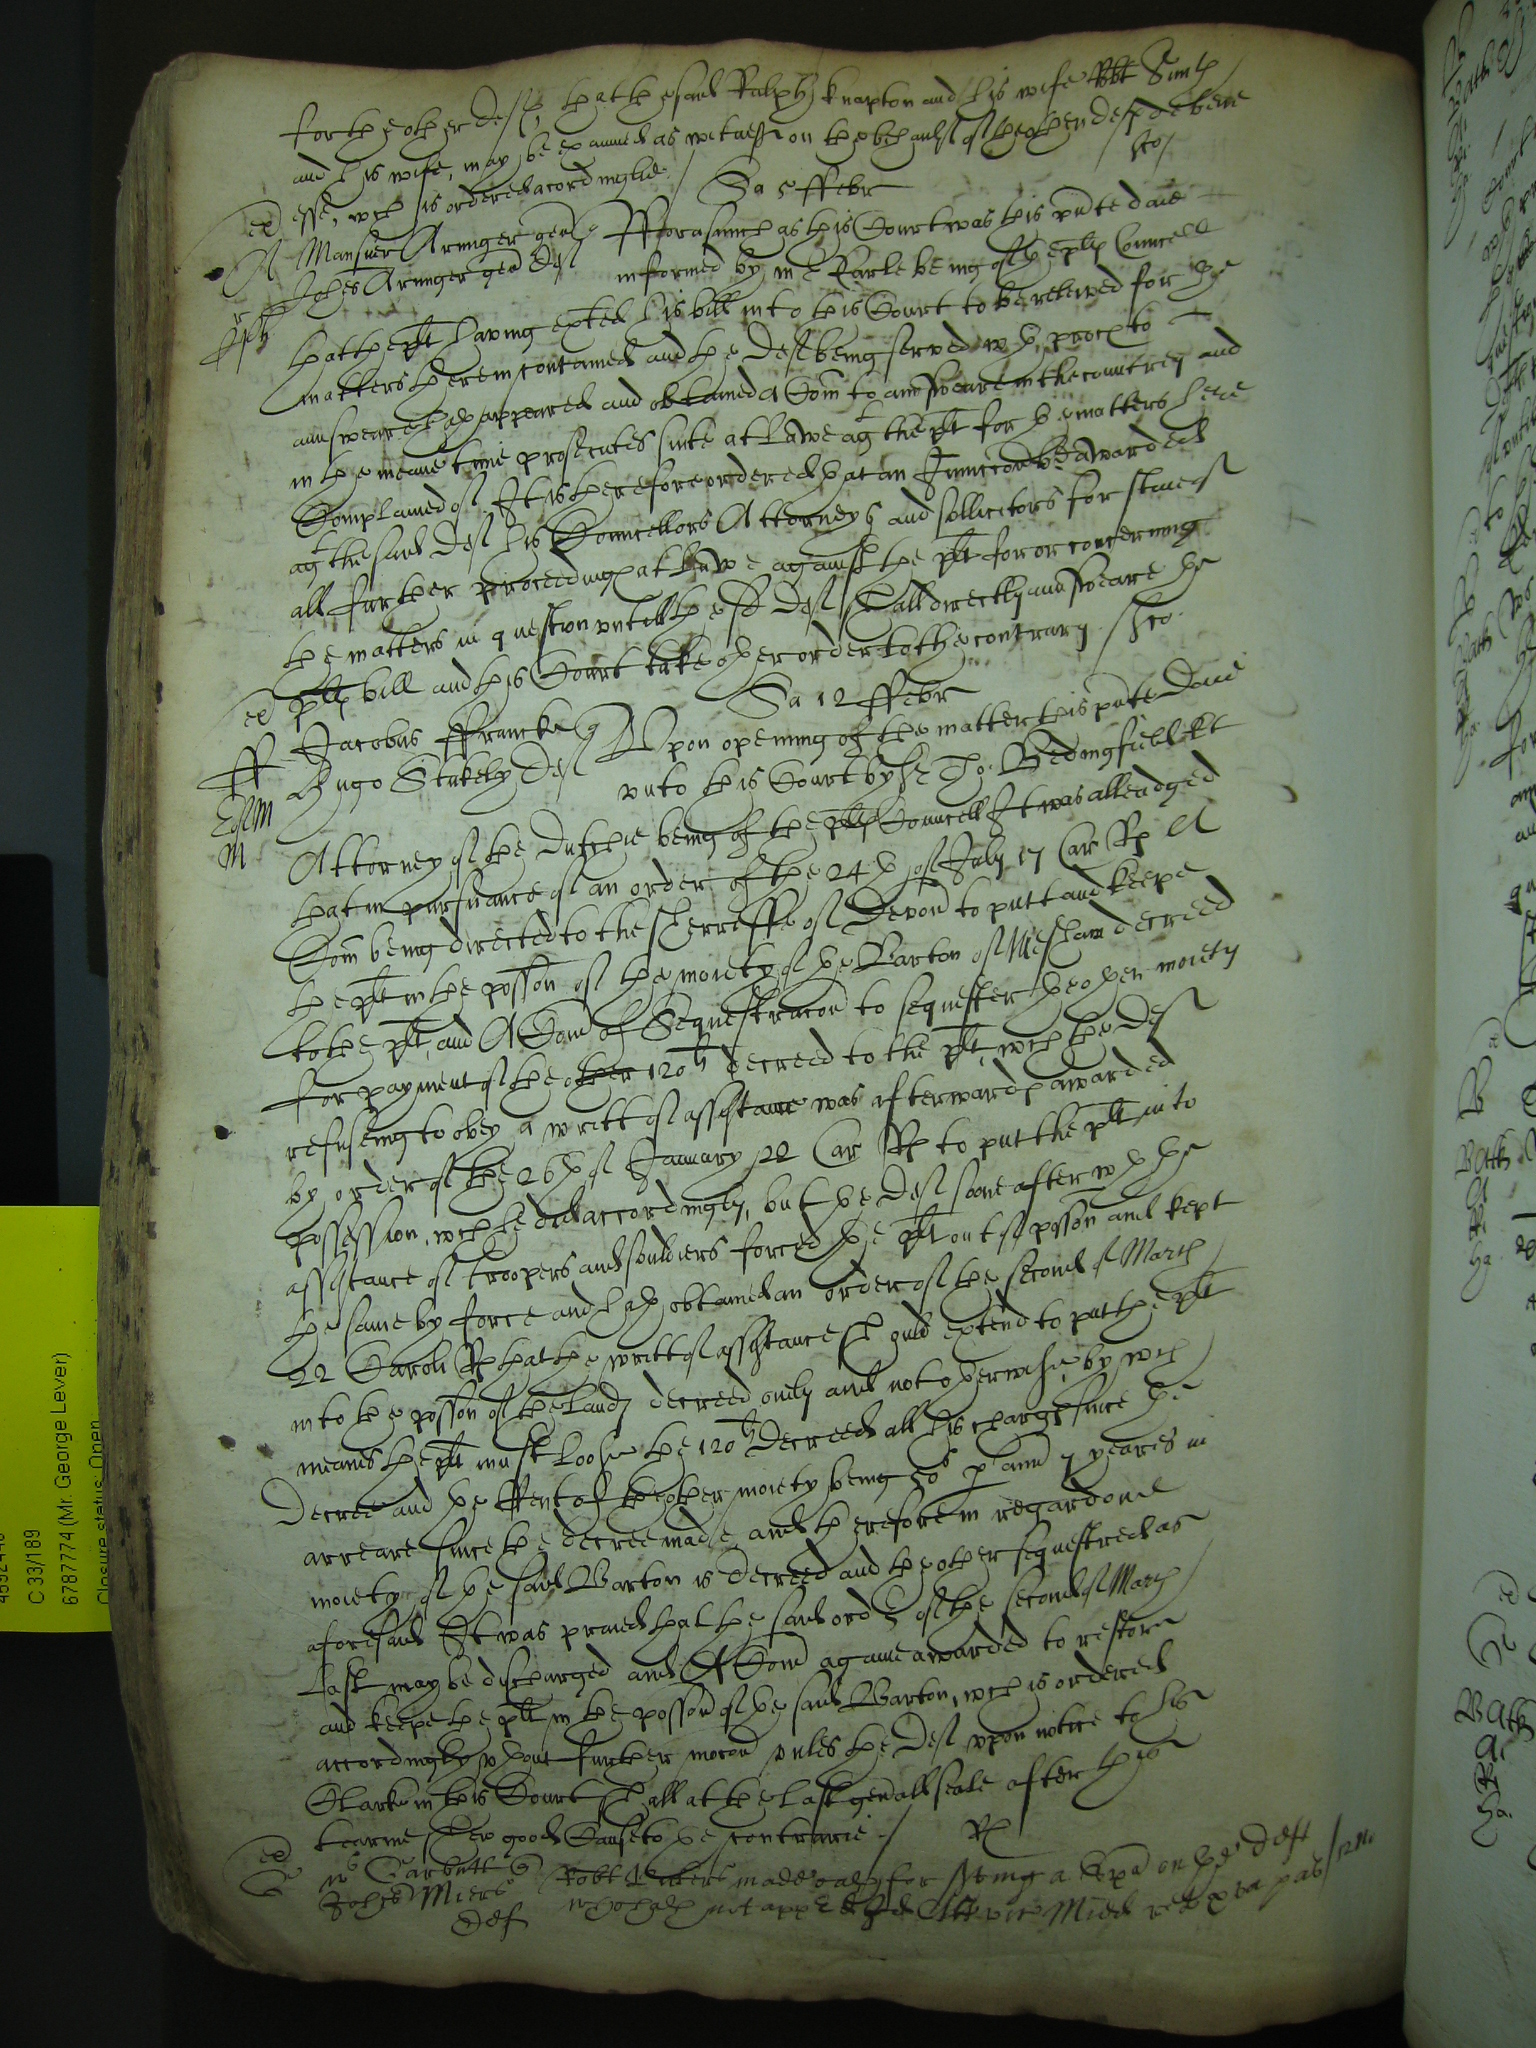 for the other deft, that the said Ralph Knapton and his wife Robt Smith
and his wife, may be examined as witnesses on the behaulf of the other deft de bene
esse, wch is ordered accordinglie /
Sa 5 ffebr
A Mansuer Aringer gen q
Johes Aringer gen Def
Fforasmuch as this Court was this pnte daie
informed by mr Earle being of the plts Councell
that the plt having exhted his bill into this Court to be releived for the
matters therein contained and the Deft being served wth proces to
aunsweare hath appeared and obtained a Com to aunsweare in the countrey and
in the meane time prosecutes suite at Lawe agt the plt for the matters here
Complained of. It is therefore ordered that an Iniuccon be awarded
agt the said Deft his Councellors Attorneys and sollicitors for staie of
all further proceedings at Lawe against the plt for or concerning
the matters in question vntill the sd Deft shall directly aunsweare the
plts bill and this Court take other order to the contrary
Sa 12 ffebr
Jacobus Ffrancke q
Hugo Stukely Def
Vpon opening of the matter this pnte Daie
vnto this Court by Sr Tho: Bedingfield kt
Attorney of the Dutchie being of the plts Councell It was alleadged
that in pursuance of an order of the 24th of July 17 Car Rs A
Com being directed to the Sherreffe of Devon to putt and keepe
the plt in the posson of the moiety of the Barton of decreed
to the plt, and A Com of Sequestracon to sequester the other moiety
for payment of the other 120li decreed to the plt, wch the Deft
refuseing to obey a writt of assistance was afterwards awarded
by order of the 26th of January 22 Car Rs to put the plt into
possession, wch he did accordingly, but the Deft soone after wth the
assistance of troopers and souldiers forced the plt out of posson and kept
the same by force and hath obtained an order of the second of March
22 Caroli Rs that the writt of assistance should extend to put the plt
into the posson of the Lands decreed only and not otherwise, by wch
meanes the plt must loose the 120li Decreed all his charges since the
Decree and the Rent of the other moiety being 50li p ann 7 yeares in
arreare since the decree made, and therefore in regard one
moiety of the said Barton is Decreed and the other sequestred as
aforesaid It was praied that the said ordr of the second of March
last may be discharged and A Com againe awarded to restore
and keepe the plt in the posson of the said Barton, wch is ordered
accordingly wthout further mocon vnles the Deft vpon notice to his
Clarke in this Court shall at the last genall seale after this
tearme shew good Cause to the contrarie /
Garbutt q
Johes Miers
Def
Robt made oath for serving a Spa on the Deft
who hath not appeared
C 33/189
6787774 (Mr. George Lever)
Closure status: Open